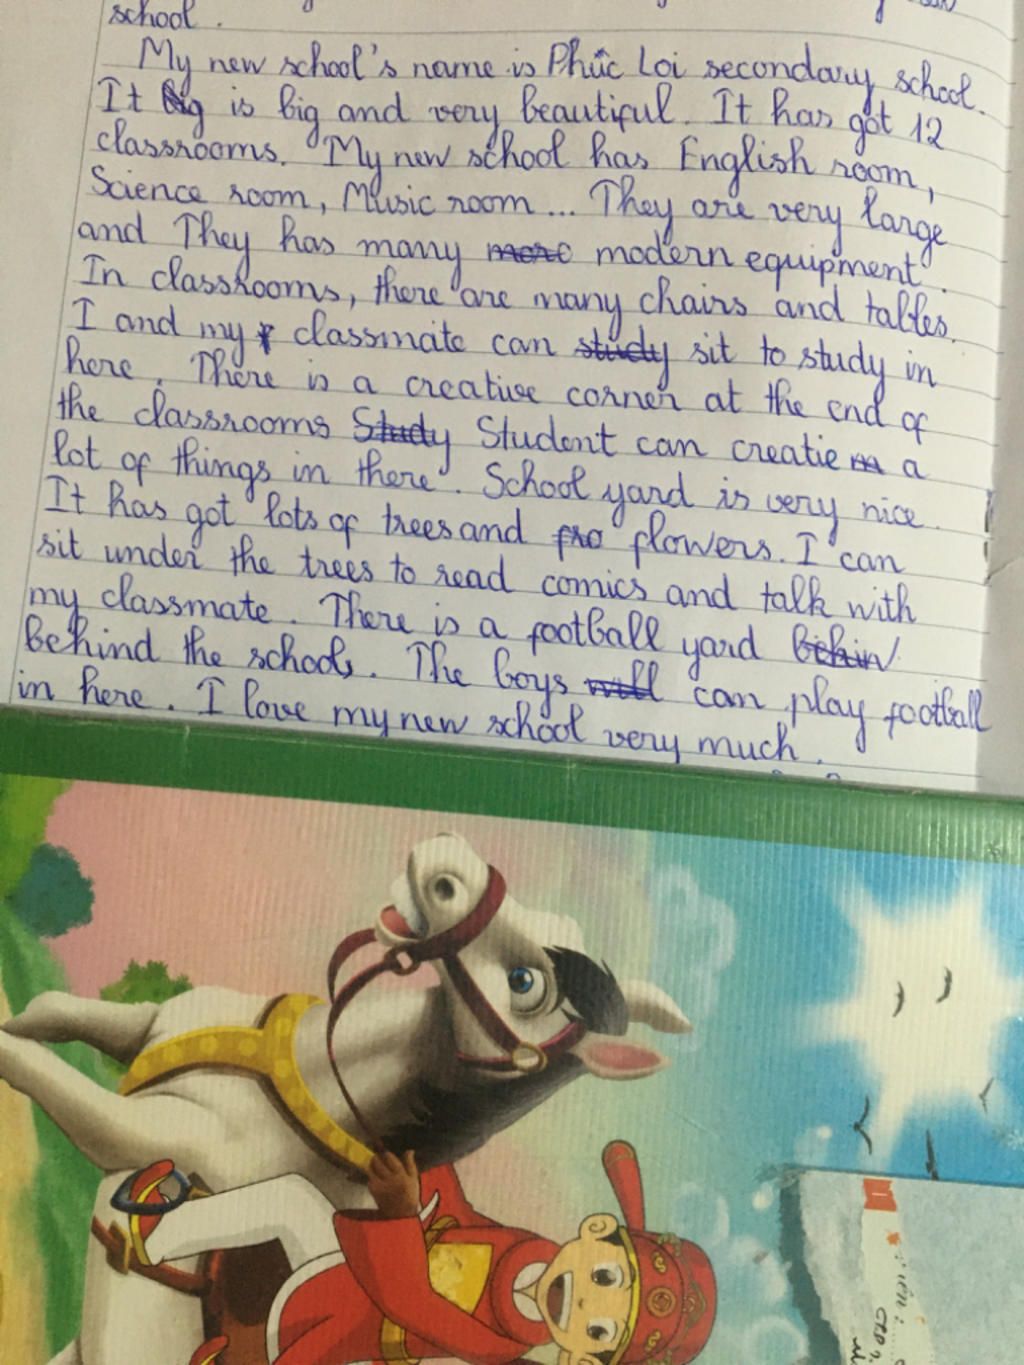 school.
My new school's name is Phúc Loi secondary school.
It big is big and very beautiful. It has got 12
classrooms. My new school has English room,
Science room, Music room... They are very large
and They has many more modern equipment.
In classrooms, there are many chairs and tables.
I and my classmate can study sit to study in
here. There is a creative corner at the end of
the classrooms Study Student can creatie m a
lot of things in there. School yard is very nice.
It has got lots of trees and fro flowers. I can
sit under the trees to read comics and talk with
my classmate. There is a football yard behin
behind the schools. The boys will can play football
in here. I love my new school very much.